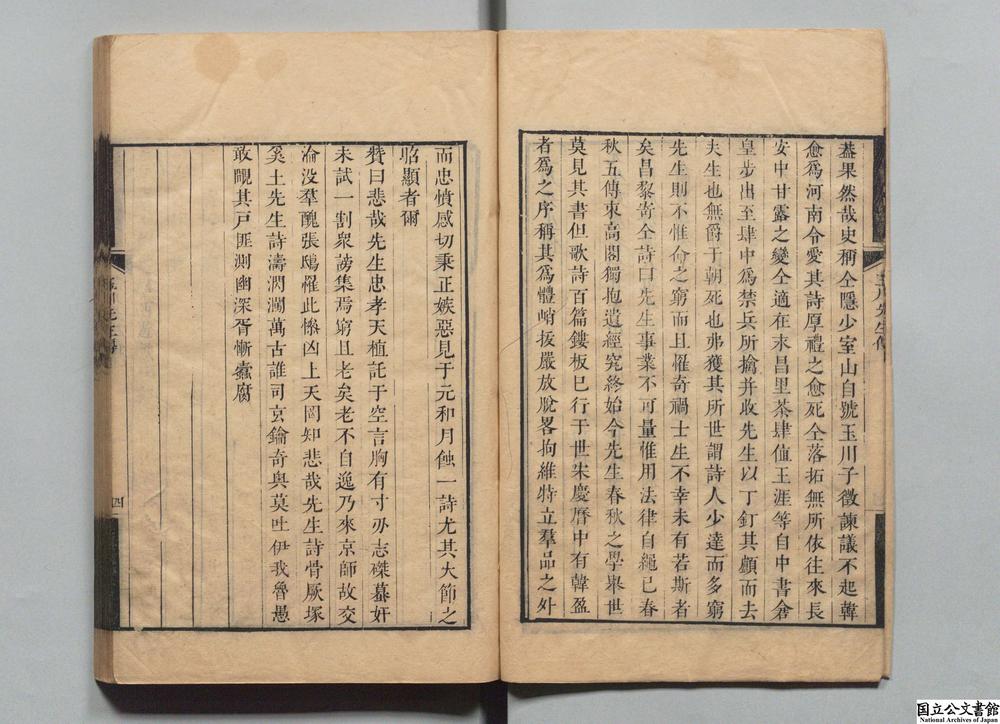 葢果然哉史稱仝隱少室山自號玉川子徵諫議不起韓
愈爲河南令愛其詩厚禮之愈死仝落拓無所依往來長
安中甘露之變仝適在永昌里茶肆値王涯等自中書倉
皇步出至肆中爲禁兵所擒并收先生以丁釘其顱而去
夫生也無爵于朝死也弗獲其所世謂詩人少達而多窮
先生則不惟命之窮而且罹奇禍士生不幸未有若斯者
矣昌黎寄仝詩曰先生事業不可量惟用法律自繩已春
秋五傳束高閣獨抱遺經究終始今先生春秋之學舉世
莫見其書但歌詩百篇鏤板已行于世宋慶曆中有韓盈
者爲之序稱其爲體峭拔嚴放脫畧拘維特立羣品之外
而忠憤感切秉正嫉惡見于元和月蝕一詩尤其大節之
昭顯者爾
贊曰悲哉先生忠孝天植託于空言胸有寸刃志磔蟇奸
未試一割衆謗集焉窮且老矣老不自逸乃來京師故交
淪没羣醜張鴟罹此慘凶上天罔知悲哉先生詩骨厥塚
奚土先生詩濤閃瀾萬古誰司玄鑰奇與莫吐伊我魯愚
敢覗其戸匪測幽深胥慚蠧腐
玉川先生傳
四
国立公文書館
National Archives of Japan